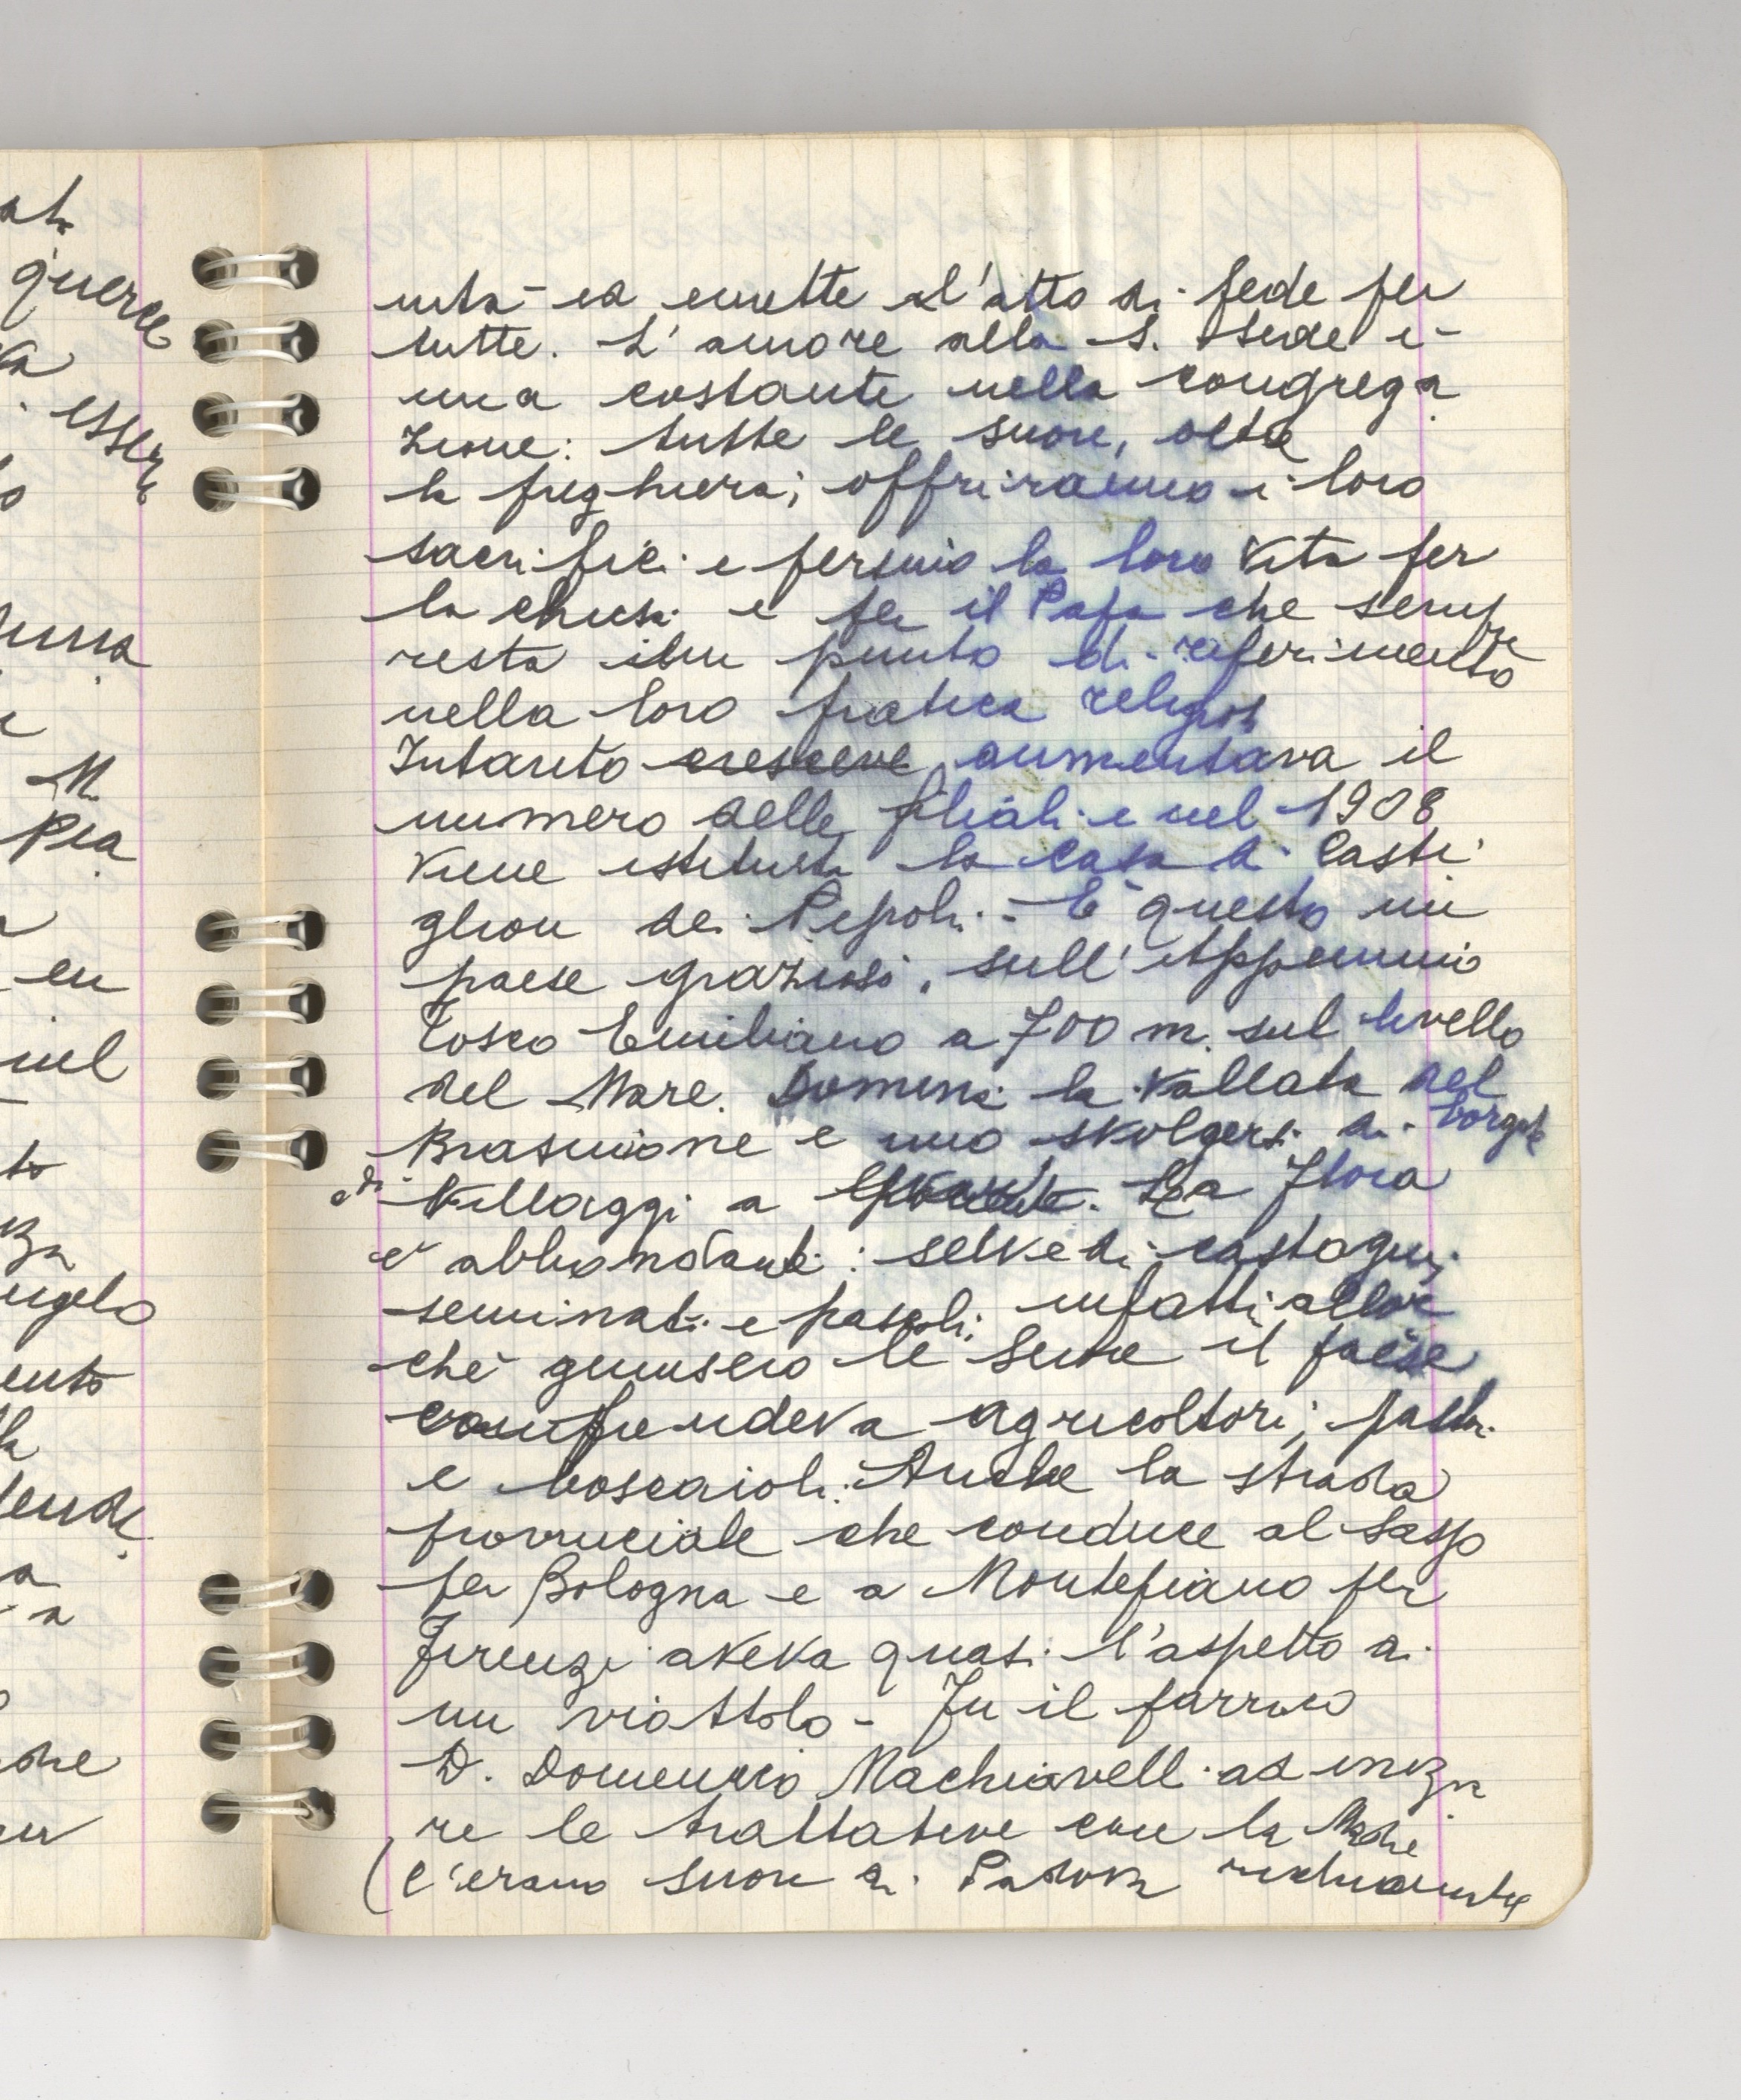 nità ed emette l'atto di fede per
tutte. L'amore alla S. Sede è
una costante nella congrega
zione: tutte le suore, oltre
la preghiera, offriranno i loro
sacrifici e persino la loro vita per
la chiesa e per il Papa che sempre
resta un punto di riferimento
nella loro pratica religiosa
Intanto cresceve aumentava il
numero delle filiali e nel 1908
viene istituita la casa di Casti
glion dei Pepoli. - È questo un
paese grazioso, sull'Appennino
Tosco Emiliano a 700 m. sul livello
del Mare. Domina la vallata del
Brasimone e uno svolgersi di borgate
e di villaggi a. La Flora
è abbondante: selve di castagni,
seminati e pascoli, infatti allor
chè giunsero le Suore il paese
comprendeva agricoltori, pastori
e boscaioli. Anche la strada
provinciale che conduce al Sasso
per Bologna e a Montepiano per
Firenze aveva quasi l'aspetto di
un viottolo - Fu il parroco
D. Domenico Machiavelli ad inizia
re le trattative con la Madre
(c'erano suore di Padova richiamate
at
querce
esser
M.
Pia
en
nel
to
angelo
ento
a
a